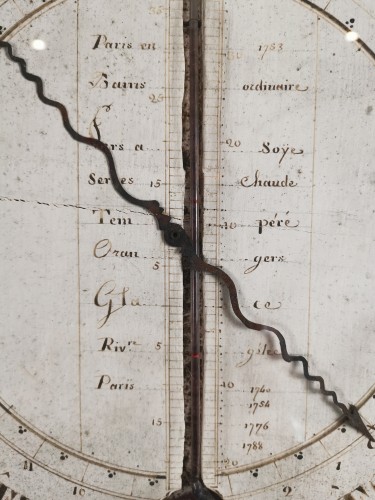 35
Paris en 1753
Bains ordinaire
25
Vers a 20 Soÿe
Serres 15 Chaude
Tem péré
10
Oran gers
5
Gla ce
Riv.re 5 gelée
Paris 10 1740
1754
15 1776
1788
20
11 1
10 2